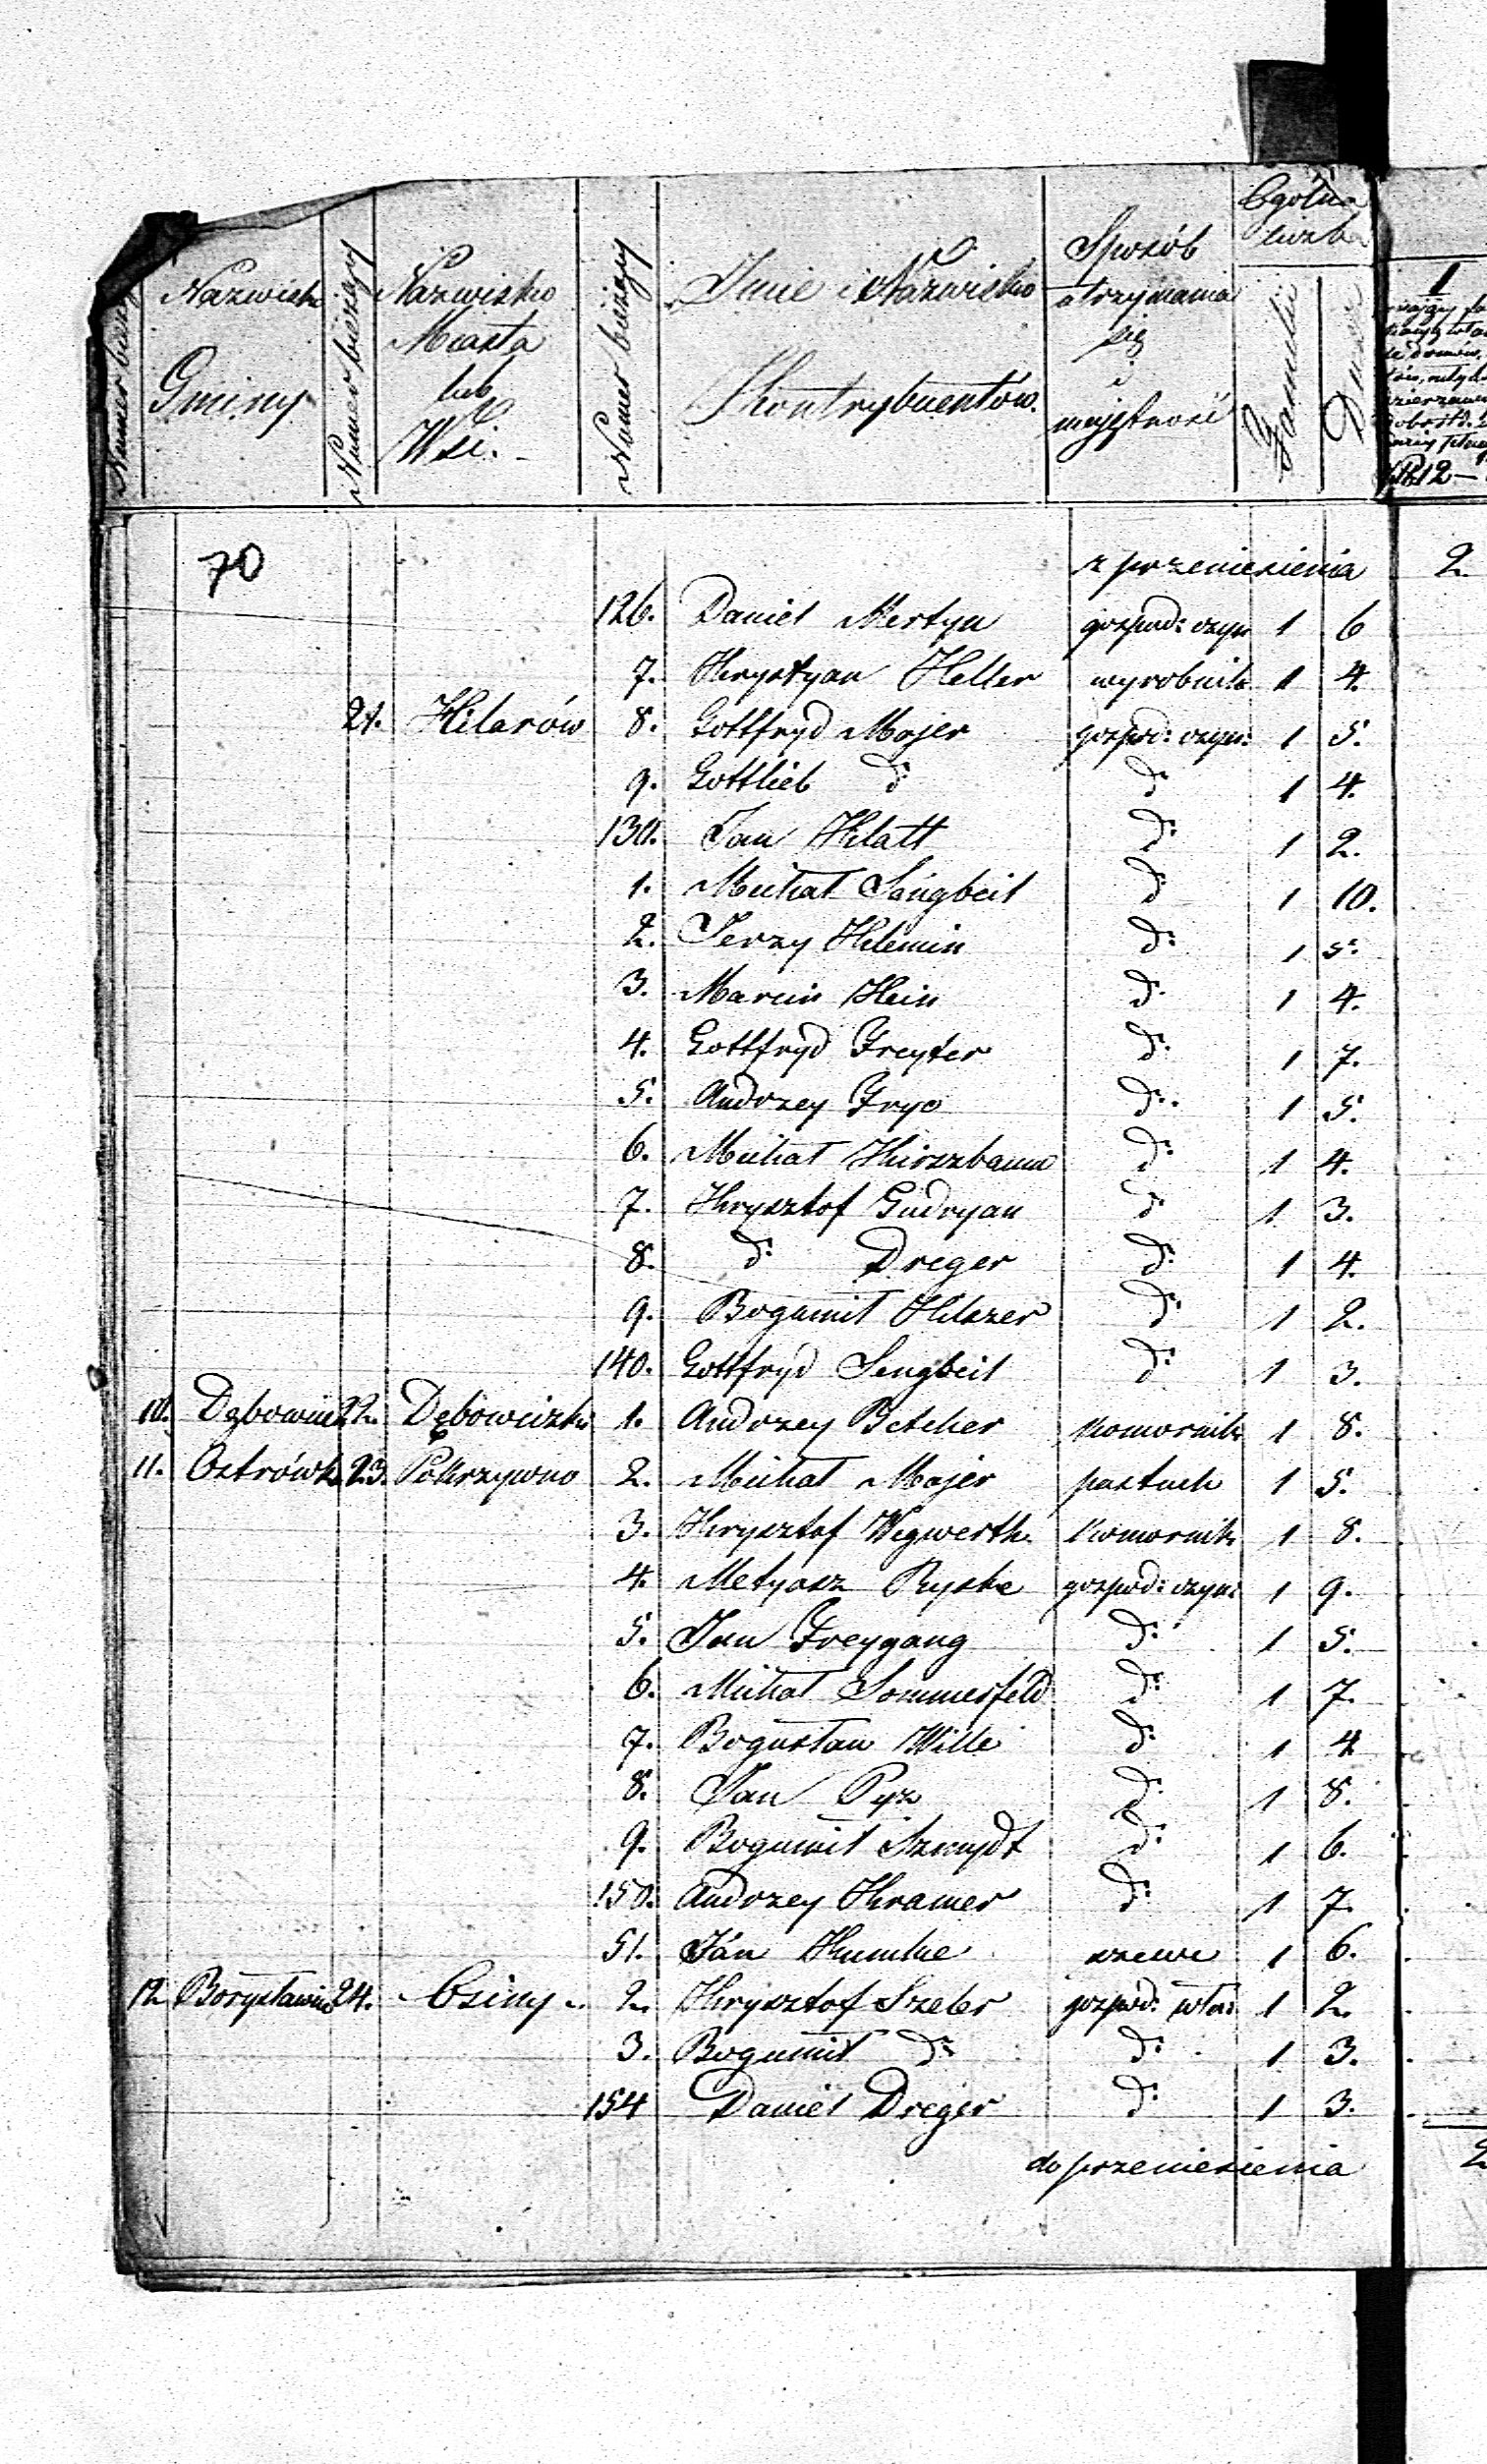 Numer bieżący
Nazwisk
Gminy
Numer bieżący
Nazwisko
Miasta
lub
Wsi.
Nomer bieżący
Imie i Nazwisko
Kontrybuentów.
Sposób
utrzymania
się
i
majętność
Ogólna
liczba
Familii
Dusz
1
12 –
70
z przeniesienia 2
126. Daniel Mertyn gospod: czyn 1 6
7. Krystyan Heller wyrobnik 1 4.
21. Hilarów 8. Gottfryd Majer gospod: czyn: 1 5.
9. Gottlieb d d: 1 4.
130. Jan Klatt d: 1 2.
1. Michał Sängbeil d 1 10.
2. Jerzy Klemin d: 1 5.
3. Marcin Hein d: 1 4.
4. Gottfryd Freyter d: 1 7.
5. Andrzey Fryc d: 1 5.
6. Michał Kirszbaum d: 1 4.
7. Krysztof Gudryan d: 1 3.
8. d: Dreger d: 1 4.
9. Bogumił Kilszer d: 1 2.
140. Gottfryd Sengbeil d: 1 3.
10. 22. Dębowiczki 1. Andrzey Betcher komornik 1 8.
11. Ostrówk 23. Pokrzywno 2. Michał Majer pastuch 1 5.
3. Krysztof Wegwerth Komornik 1 8.
4. Metyasz Ryske gospod: czyn: 1 9.
5. Jan Freygang d: 1 5.
6. Michał Sommerfeld d: 1 7.
7. Bogusław Wille d: 1 4
8. Jan Pyz d: 1 8.
9. Bogumił Szmydt d: 1 6.
150. Andrzey Kramer d: 1 7.
51. Ján Kumke szewc 1 6.
12. Borysławic 24. Osiny 2. Krysztof Szeler gospod: włas: 1 2.
3. Bogumił d: d: 1 3.
154 Daniel Dreger d: 1 3.
do przeniesienia 2